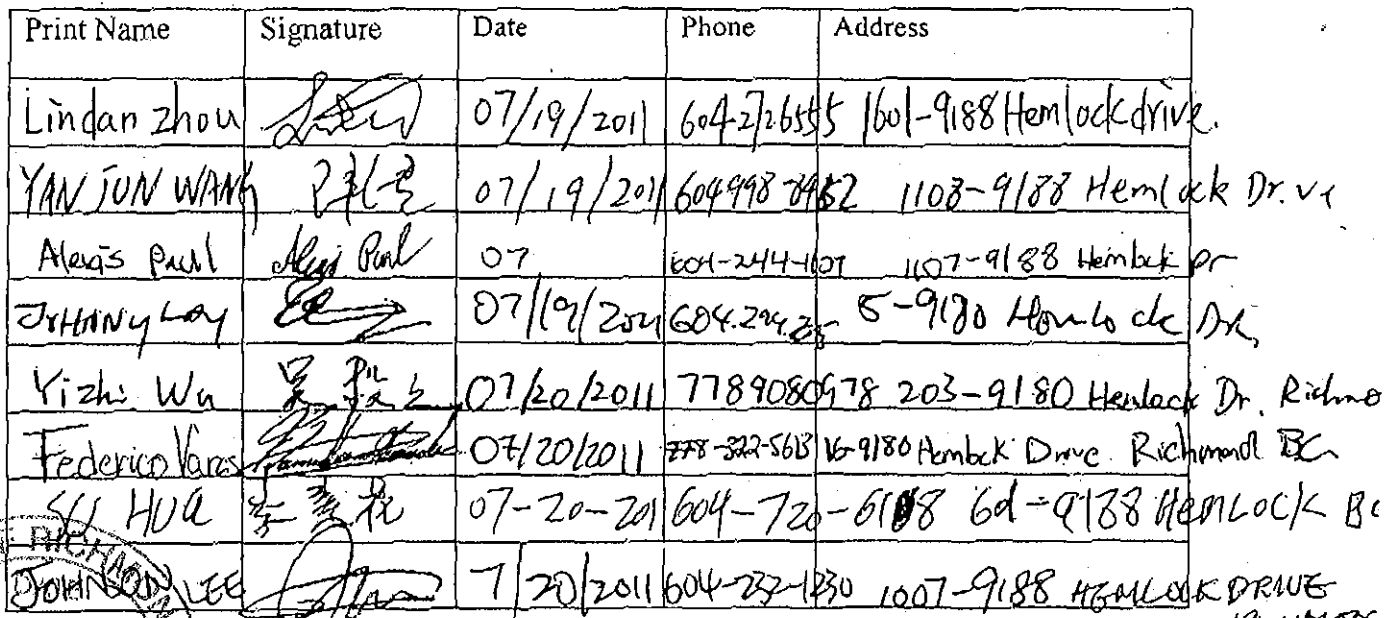 Print Name Signature Date Phone Address
Lindan Zhou 07/19/2011 604-2726555 1601-9188 Hemlock drive.
YAN JUN WANG 07/19/2011 604998-8952 1103-9188 Hemlock Dr.ve
Alexis Paul Alexis Paul 07 604-244-1107 1107-9188 Hemlock Dr
07/19/2011 5-9180 Hemlock Dr,
Yizhi Wu 07/20/2011 7789080978 203-9180 Hemlock Dr. Richmo
Federico Varas 07/20/2011 778-322-5613 16-9180 Hemlock Drive Richmond BC
SU HUA 07-20-2011 604-720-6188 -9188 HEMLOCK BC
JOHNSON LEE 7/20/2011 604-232-1230 1007-9188 HEMLOCK DRIVE